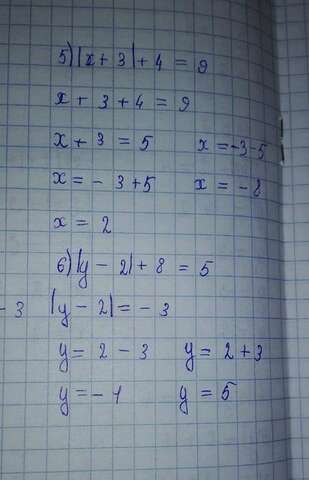 5) |x + 3| + 4 = 9
x + 3 + 4 = 9
x + 3 = 5 x = -3-5
x = - 3 + 5 x = - 8
x = 2
6) |y - 2| + 8 = 5
- 3 |y - 2| = - 3
y = 2 - 3 y = 2 + 3
y = - 1 y = 5